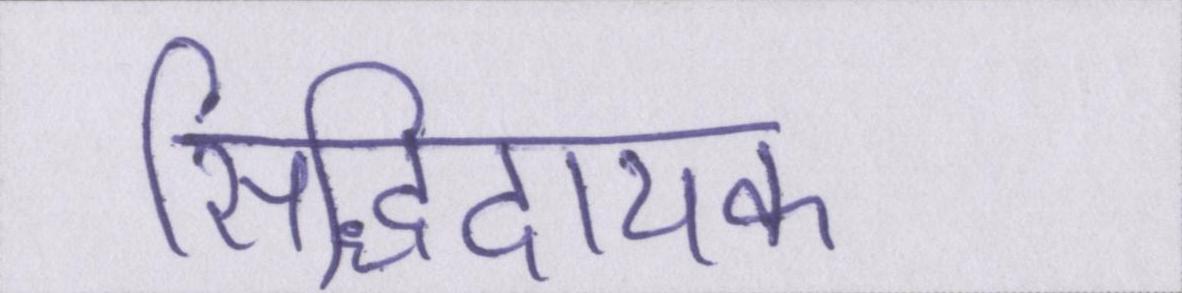 सिद्धिदायक